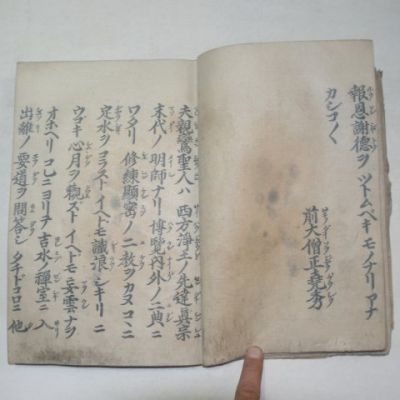 報恩謝德ヲツトムベキモノナリアナ
カシコ〱
前大僧正堯秀
夫親鸞聖人ハ西方淨土ノ先達真宗
末代ノ明師ナリ博覽内外ノ二典ニ
ワタリ修練顯密ノ二教ヲカヌコヽニ
定水ヲコラストイヘトモ識浪シキリニ
ウゴキ心月ヲ觀ストイヘトモ妄雲ナヲ
オホヘリコレニヨリテ吉水ノ禪室ニ入
出離ノ要道ヲ問答シタチトコロニ他